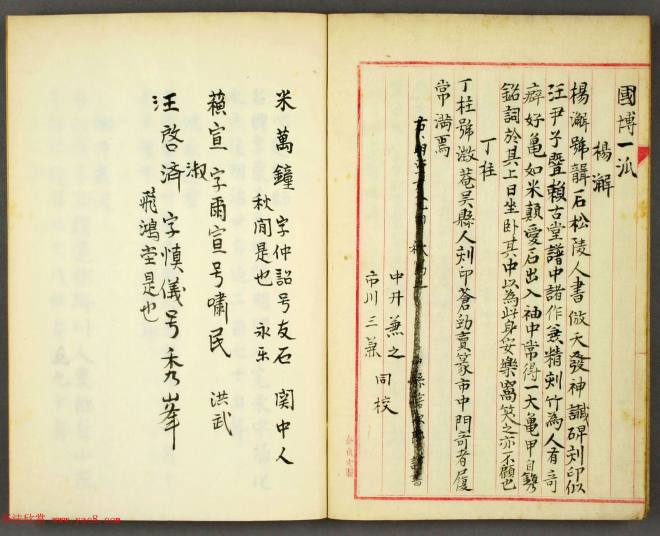 國博一派
楊澥
楊澥號聾石松陵人書倣天發神讖碑刻印似
汪尹子暨賴古堂譜中諸作兼精刻竹為人有奇
癖好亀如米顛愛石出入袖中常得一大亀甲自鐫
銘詞於其上日坐卧其中以為此身安樂窩笑之亦不顧也
丁柱
丁柱號澂菴吳縣人刻印蒼勁賣篆市中門前者屨
常満焉
中井兼之
市川三兼
同校
米萬鐘 字仲詔号友石 関中人
秋閒是也 永乐
蘓宣 字爾宣号嘯民 洪武
淑
汪啓済 字慎儀号秀峯
飛鴻堂是也
www.yac8.com